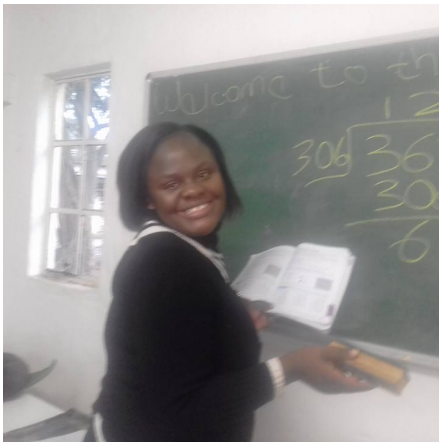 Welcome to th
12
306 36
30
6